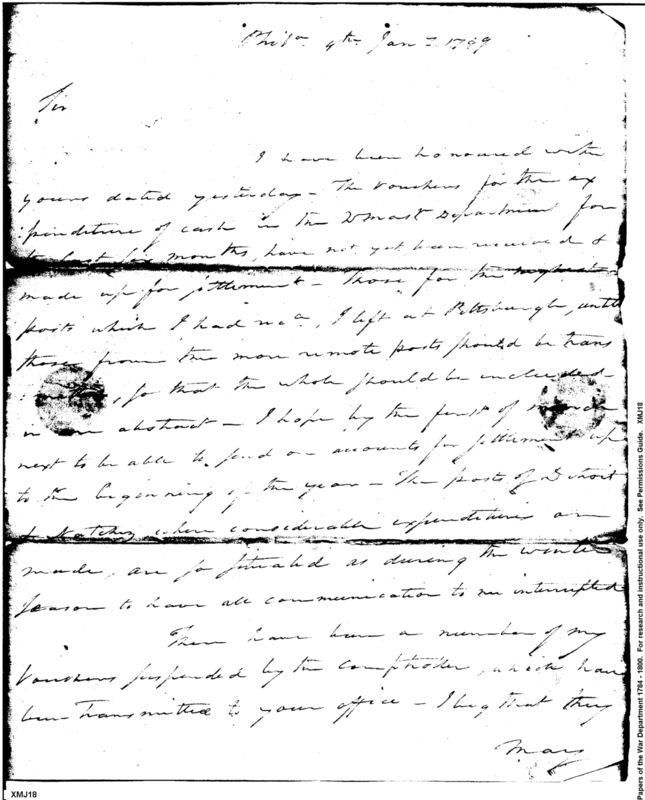 Phila. 4th. Jany. 1799
Sir
I have been honoured with
yours dated yesterday – The Vouchers for the ex
penditure of cash in the Qmast Department for
the last six months, have not yet been received &
made up for settlement – Those for the
posts which I had recd., I left at Pittsburgh, until
those from the more remote posts should be trans
mitted, so that the whole should be included
in one abstract – I hope by the first of
next to be able to send on accounts for settlement up
to the beginning of the year – The posts of Detroit
& Natchez where considerable expenditures are
made, are so situated as during the winter
season to have all communication to me interrupted
There have been a number of my
Vouchers suspended by the comptroller, which have
been transmitted to your office – I beg that they
may
XMJ18
Papers of the War Department 1784 - 1800. For research and instructional use only. See Permissions Guide. XMJ18